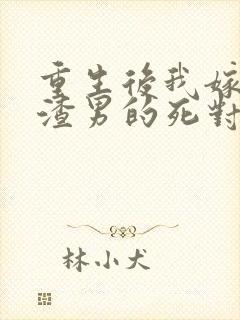 重生後我嫁
渣男的死對
林小犬